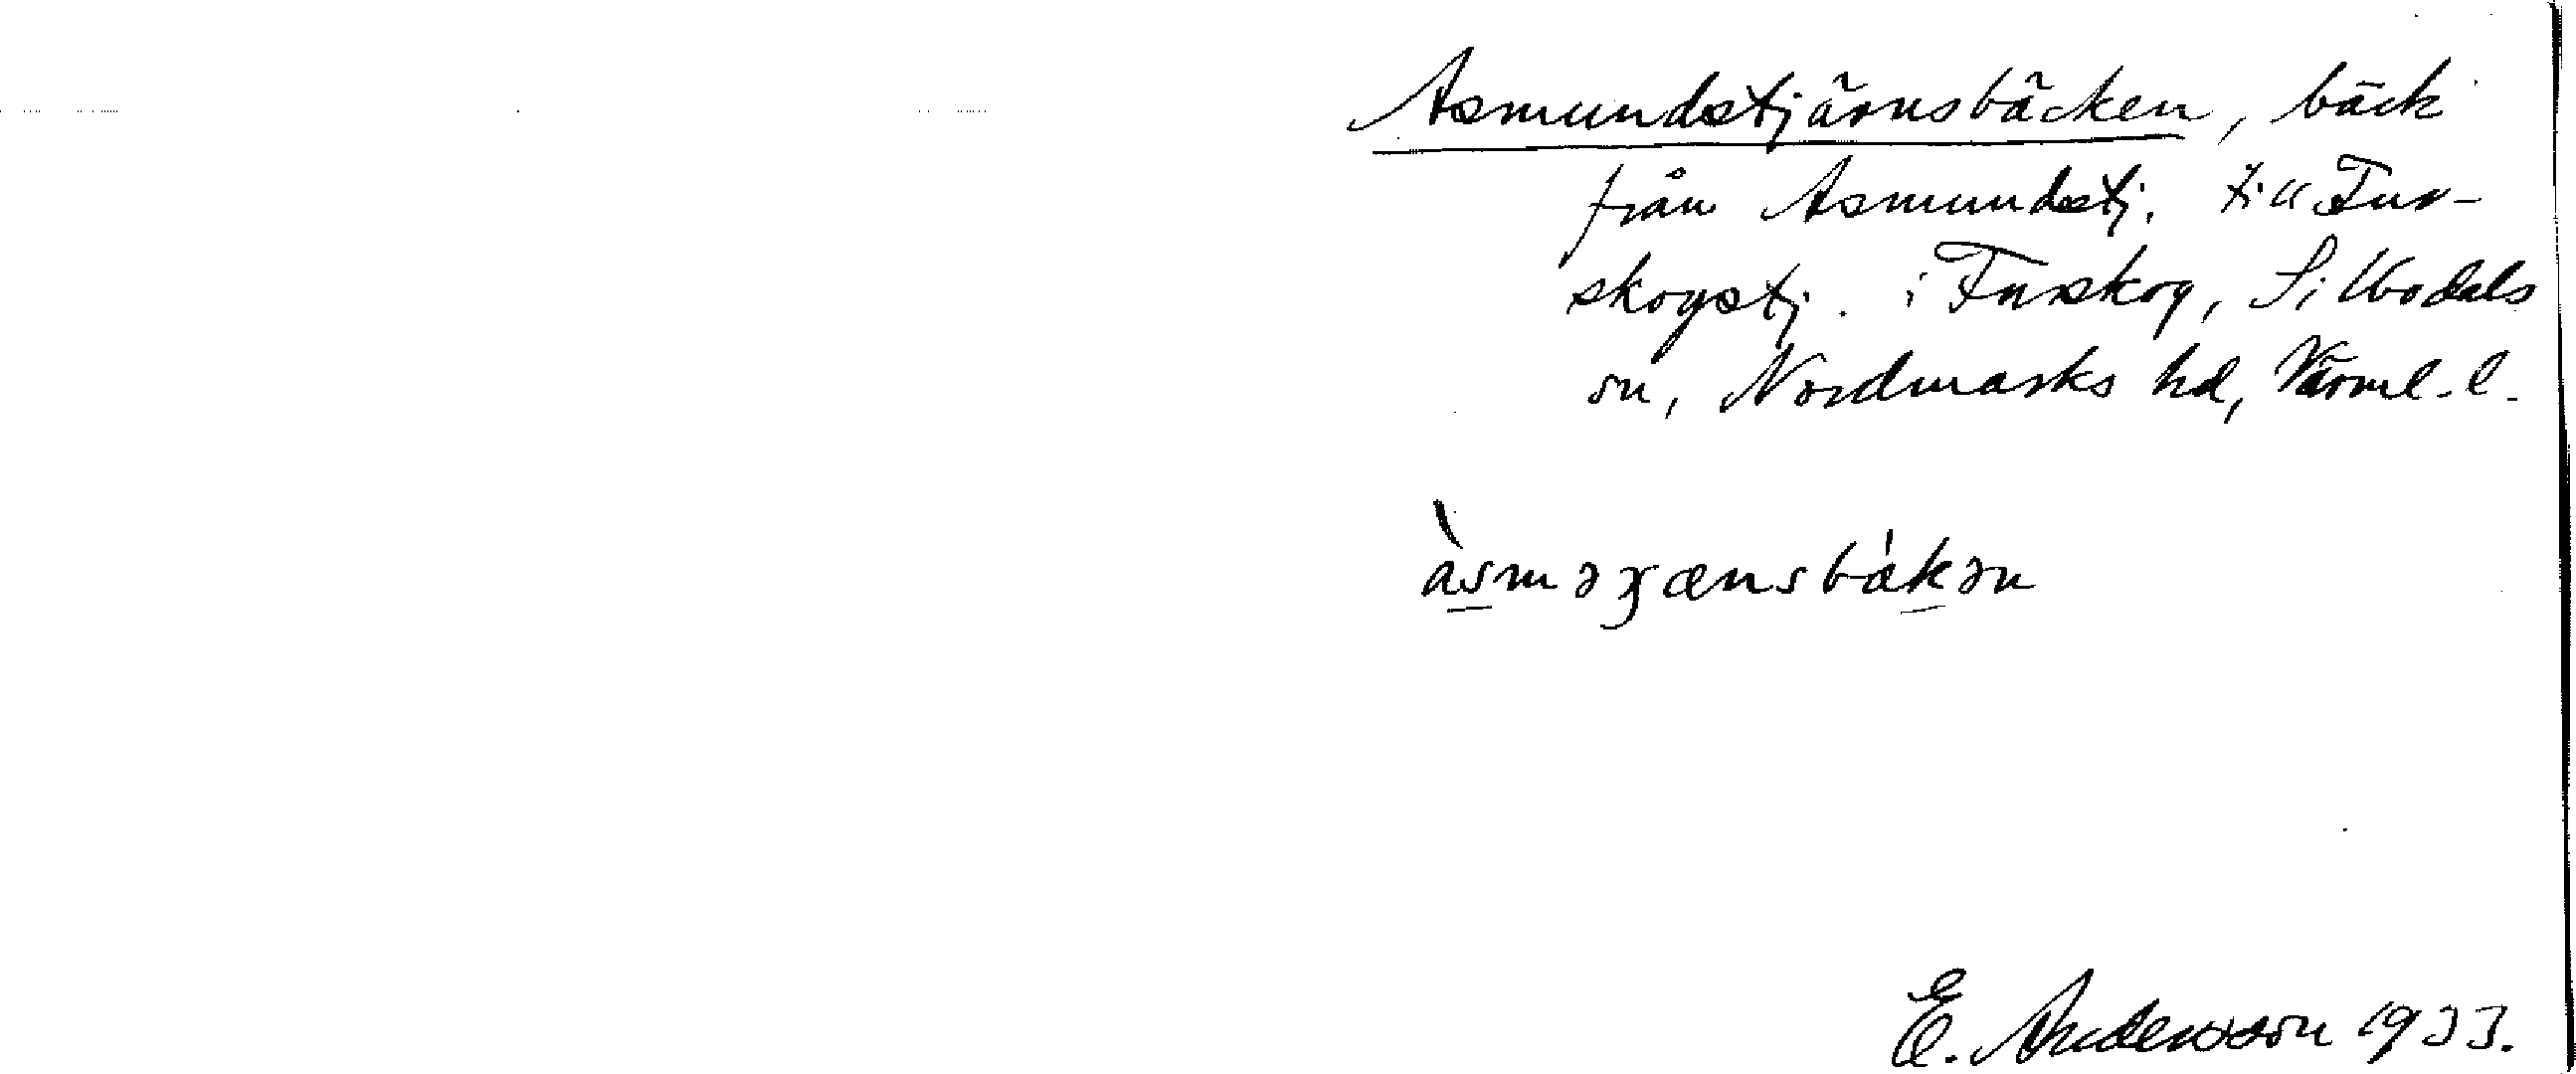 Asmundstjärnsbäcken, bäck
från Asmundstj. till Fur-
skogstj. i Furskog, Sillbodals
sn, Nordmarks hd, Värml. l.
àsməɟænsbækən
E. Andersson 1933.